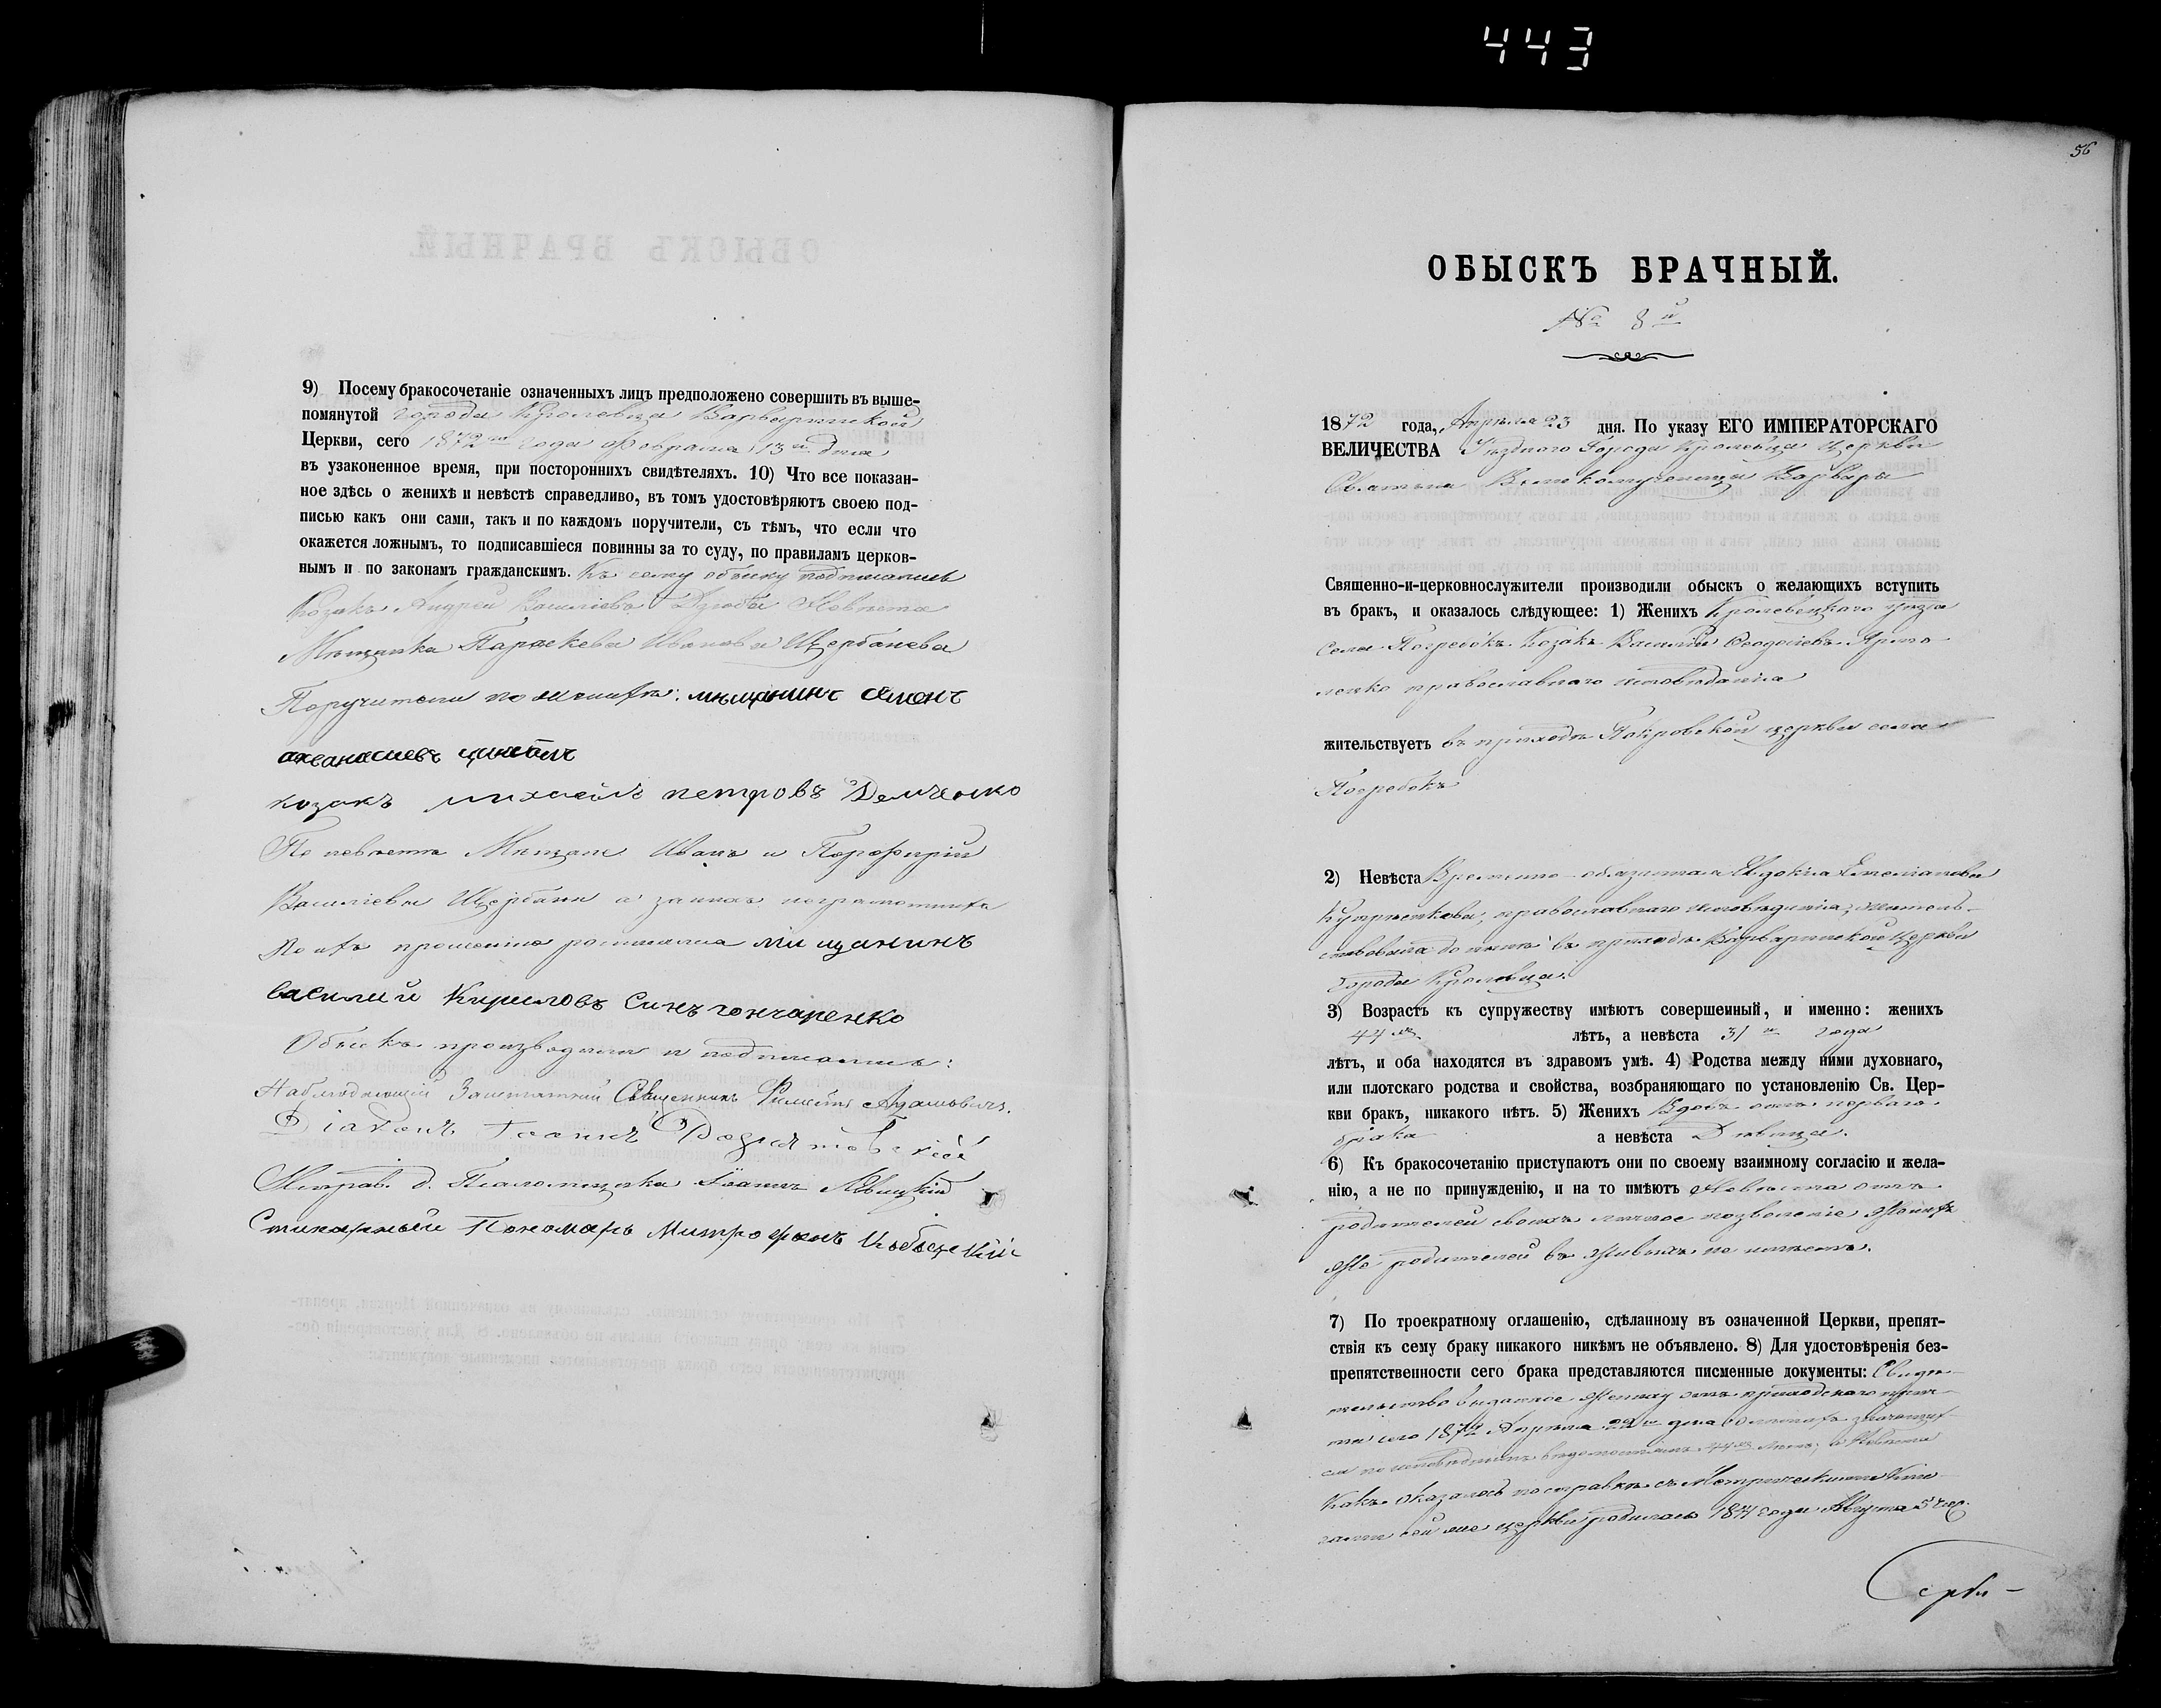 443
9) Посему бракосочетаніе означенныхъ лицъ предположено совершить въ выше-
помянутой города Кролевца Варваринской
Церкви, сего 1872го года Февраля 13 дня
въ узаконенное время, при постороннихъ свидѣтеляхъ. 10) Что все показан-
ное здѣсь о женихѣ и невѣстѣ справедливо, въ томъ удостовѣряютъ своею под-
писью какъ они сами, такъ и по каждомъ поручители, съ тѣмъ, что если что
окажется ложнымъ, то подписавшіеся повинны за то суду, по правиламъ церков-
нымъ и по законамъ гражданскимъ. Къ сему обыску подписались
Козакъ Андрей Васильевъ Дзюба Невѣста
Мѣщанка Параскева Иванова Щербанева
Поручители по женихѣ: мѣщанинъ Семенъ
козакъ михаилъ петровъ Демченко
По невѣстѣ Мѣщане Иванъ и Порфирій
Васильевы Щербани а за нихъ неграмотныхъ
По ихъ прошенію мищанинъ
василий Кириловъ Синъ гончаренко
Обыскъ производили и подписались:
Наблюдающій Заштатный Священникъ Адамовичъ.
Діаконъ Іоаннъ
Исправ. д. Псаломщика Іоаннъ Левицкій
Стихарный Пономарь Митрофанъ
56
ОБЫСКЪ БРАЧНЫЙ.
№ 8й
1872 года, Апрѣля 23 дня. По указу ЕГО ИМПЕРАТОРСКАГО
ВЕЛИЧЕСТВА Уѣзднаго Города Кролевца Церкви
Святыя Великомученицы Варвары
Священно-и-церковнослужители производили обыскъ о желающихъ вступить
въ бракъ, и оказалось слѣдующее: 1) Женихъ Кролевецкаго уѣзда
села Погребокъ Козакъ Василій Ѳеодосіевъ Ярмо-
ленко православнаго исповѣданія
жительствуетъ въ приходѣ Покровской церкви села
Погребокъ
2) Невѣста Временно-обязанная Евдокія Емеліанова
православнаго исповѣданія, житель-
ствовала до нынѣ въ приходѣ Варваринской Церкви
города Кролевца.
3) Возрастъ къ супружеству имѣютъ совершенный, и именно: женихъ
44хъ лѣтъ, а невѣста 31го года
лѣтъ, и оба находятся въ здравомъ умѣ. 4) Родства между ними духовнаго,
или плотскаго родства и свойства, возбраняющаго по установленію Св. Цер-
кви бракъ, никакого нѣтъ. 5) Женихъ Вдовъ отъ перваго
брака а невѣста Дѣвица.
6) Къ бракосочетанію приступаютъ они по своему взаимному согласію и жела-
нію, а не по принужденію, и на то имѣютъ Невѣста отъ
родителей своихъ личное позволеніе Женихъ
же родителей въ живыхъ не имѣетъ.
7) По троекратному оглашенію, сдѣланному въ означенной Церкви, препят-
ствія къ сему браку никакого никѣмъ не объявлено. 8) Для удостовѣренія без-
препятственности сего брака представляются писменные документы: Свидѣ-
тельство выданное Жениху отъ приходскаго прич-
та сего 1872 Апрѣля 22го дня
ся по исповѣднымъ вѣдомостямъ 44хъ лѣтъ; а Невѣста
Какъ оказалось по справкѣ съ Метрическими Кни-
гами сей же церкви родилась года Августа 5 чис.